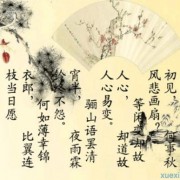 初见，何事秋
风悲画扇。
等闲变却故
人心，却道故
人心易变。
骊山语罢清
宵半，夜雨霖
铃终不怨。
何如薄幸锦
衣郎，比翼连
枝当日愿
xuexi